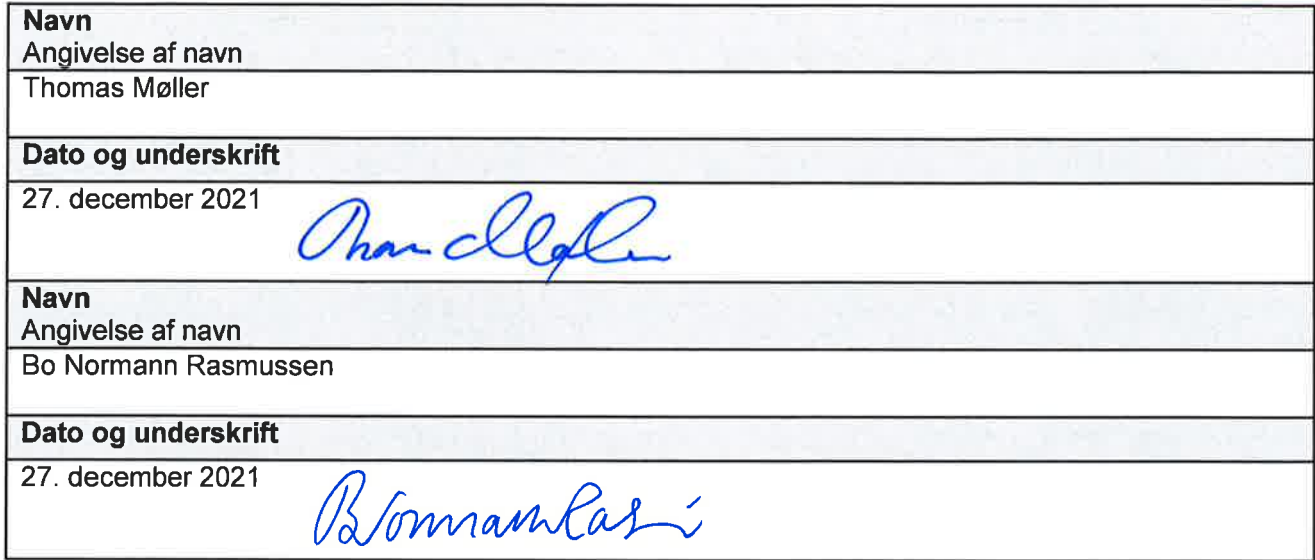 Navn
Angivelse af navn
Thomas Møller
Dato og underskrift
27. december 2021
Navn
Angivelse af navn
Bo Normann Rasmussen
Dato og underskrift
27. december 2021